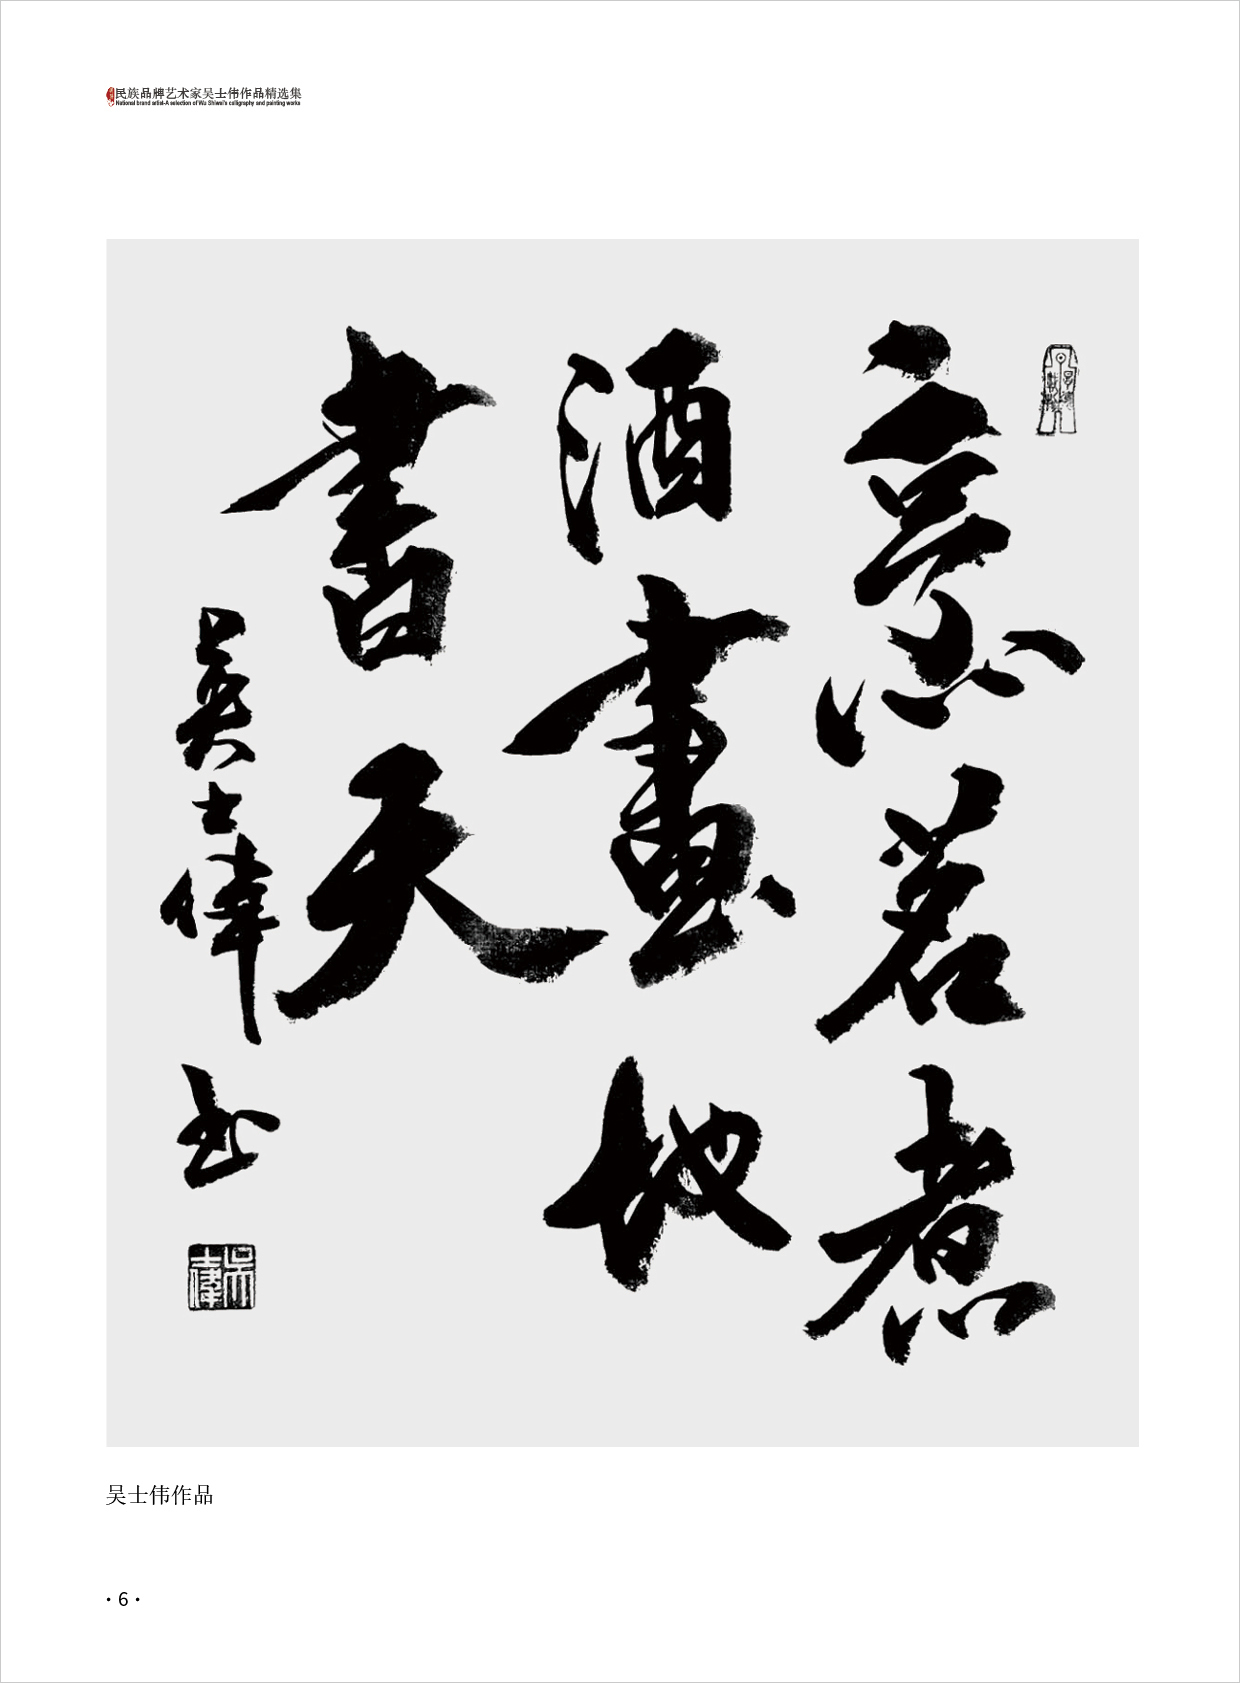 民族品牌艺术家吴士伟作品精选集
National brand artist-A selection of Wu Shiwei's calligraphy and painting works
烹茗煮
酒畫地
書天
吳士偉书
吴士偉
吴士伟作品
·6·